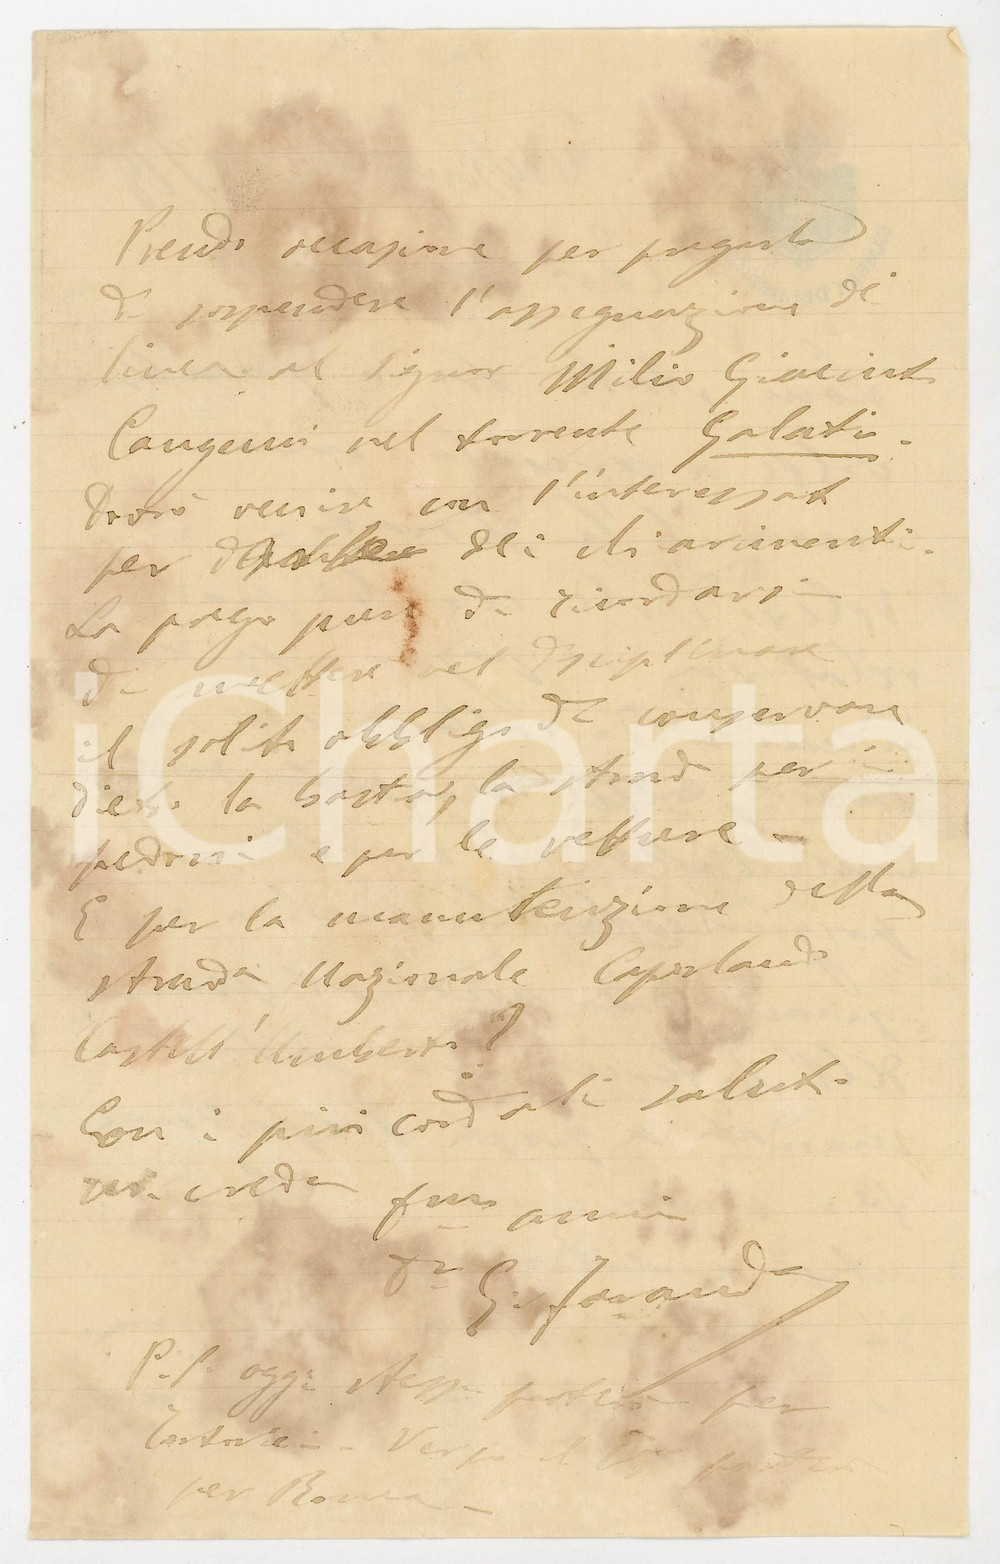 Prendo occasione per pregarla
di sospendere l'assegnazione di
linea al signor Milio Giacinto
Cangemi nel torrente Galati.
Dovrò venire con l'interessato
per dei chiarimenti.
La prego pure di ricordarsi
di mettere nel disciplinare
il solito obbligo di conservare
dietro la la strada per i
pedoni e per le vetture —
E per la manutenzione della
strada Nazionale Capo Orlando
Castell'Umberto?
Con i più cordiali saluti
mi creda
amico
Dr G.
P.S. oggi stesso partirò per
Tortorici - Verso il
per Roma —
iCharta